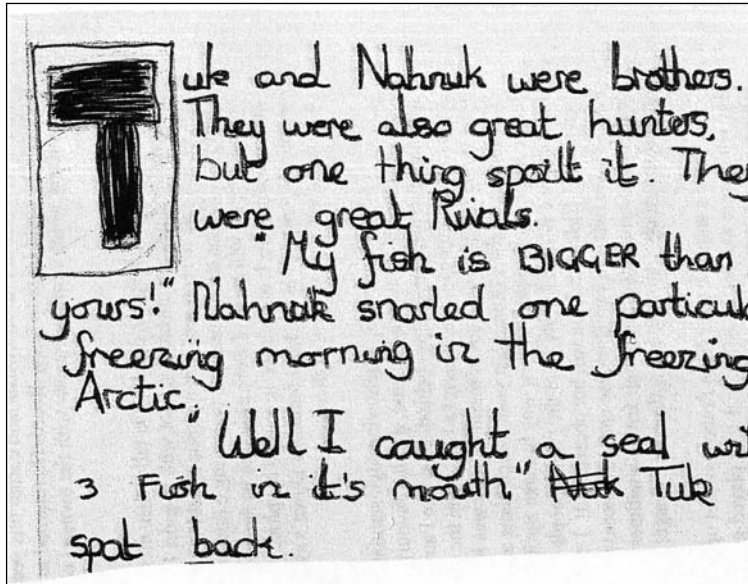 Tuk and Nahnuk were brothers.
They were also great hunters,
but one thing spoilt it. They
were great Rivals.
"My fish is BIGGER than
yours!" Nahnuk snarled one particula
freezing morning in the freezing
Arctic,
"Well I caught a seal wit
3 Fish in it's mouth" Nuk Tuk
spat back.